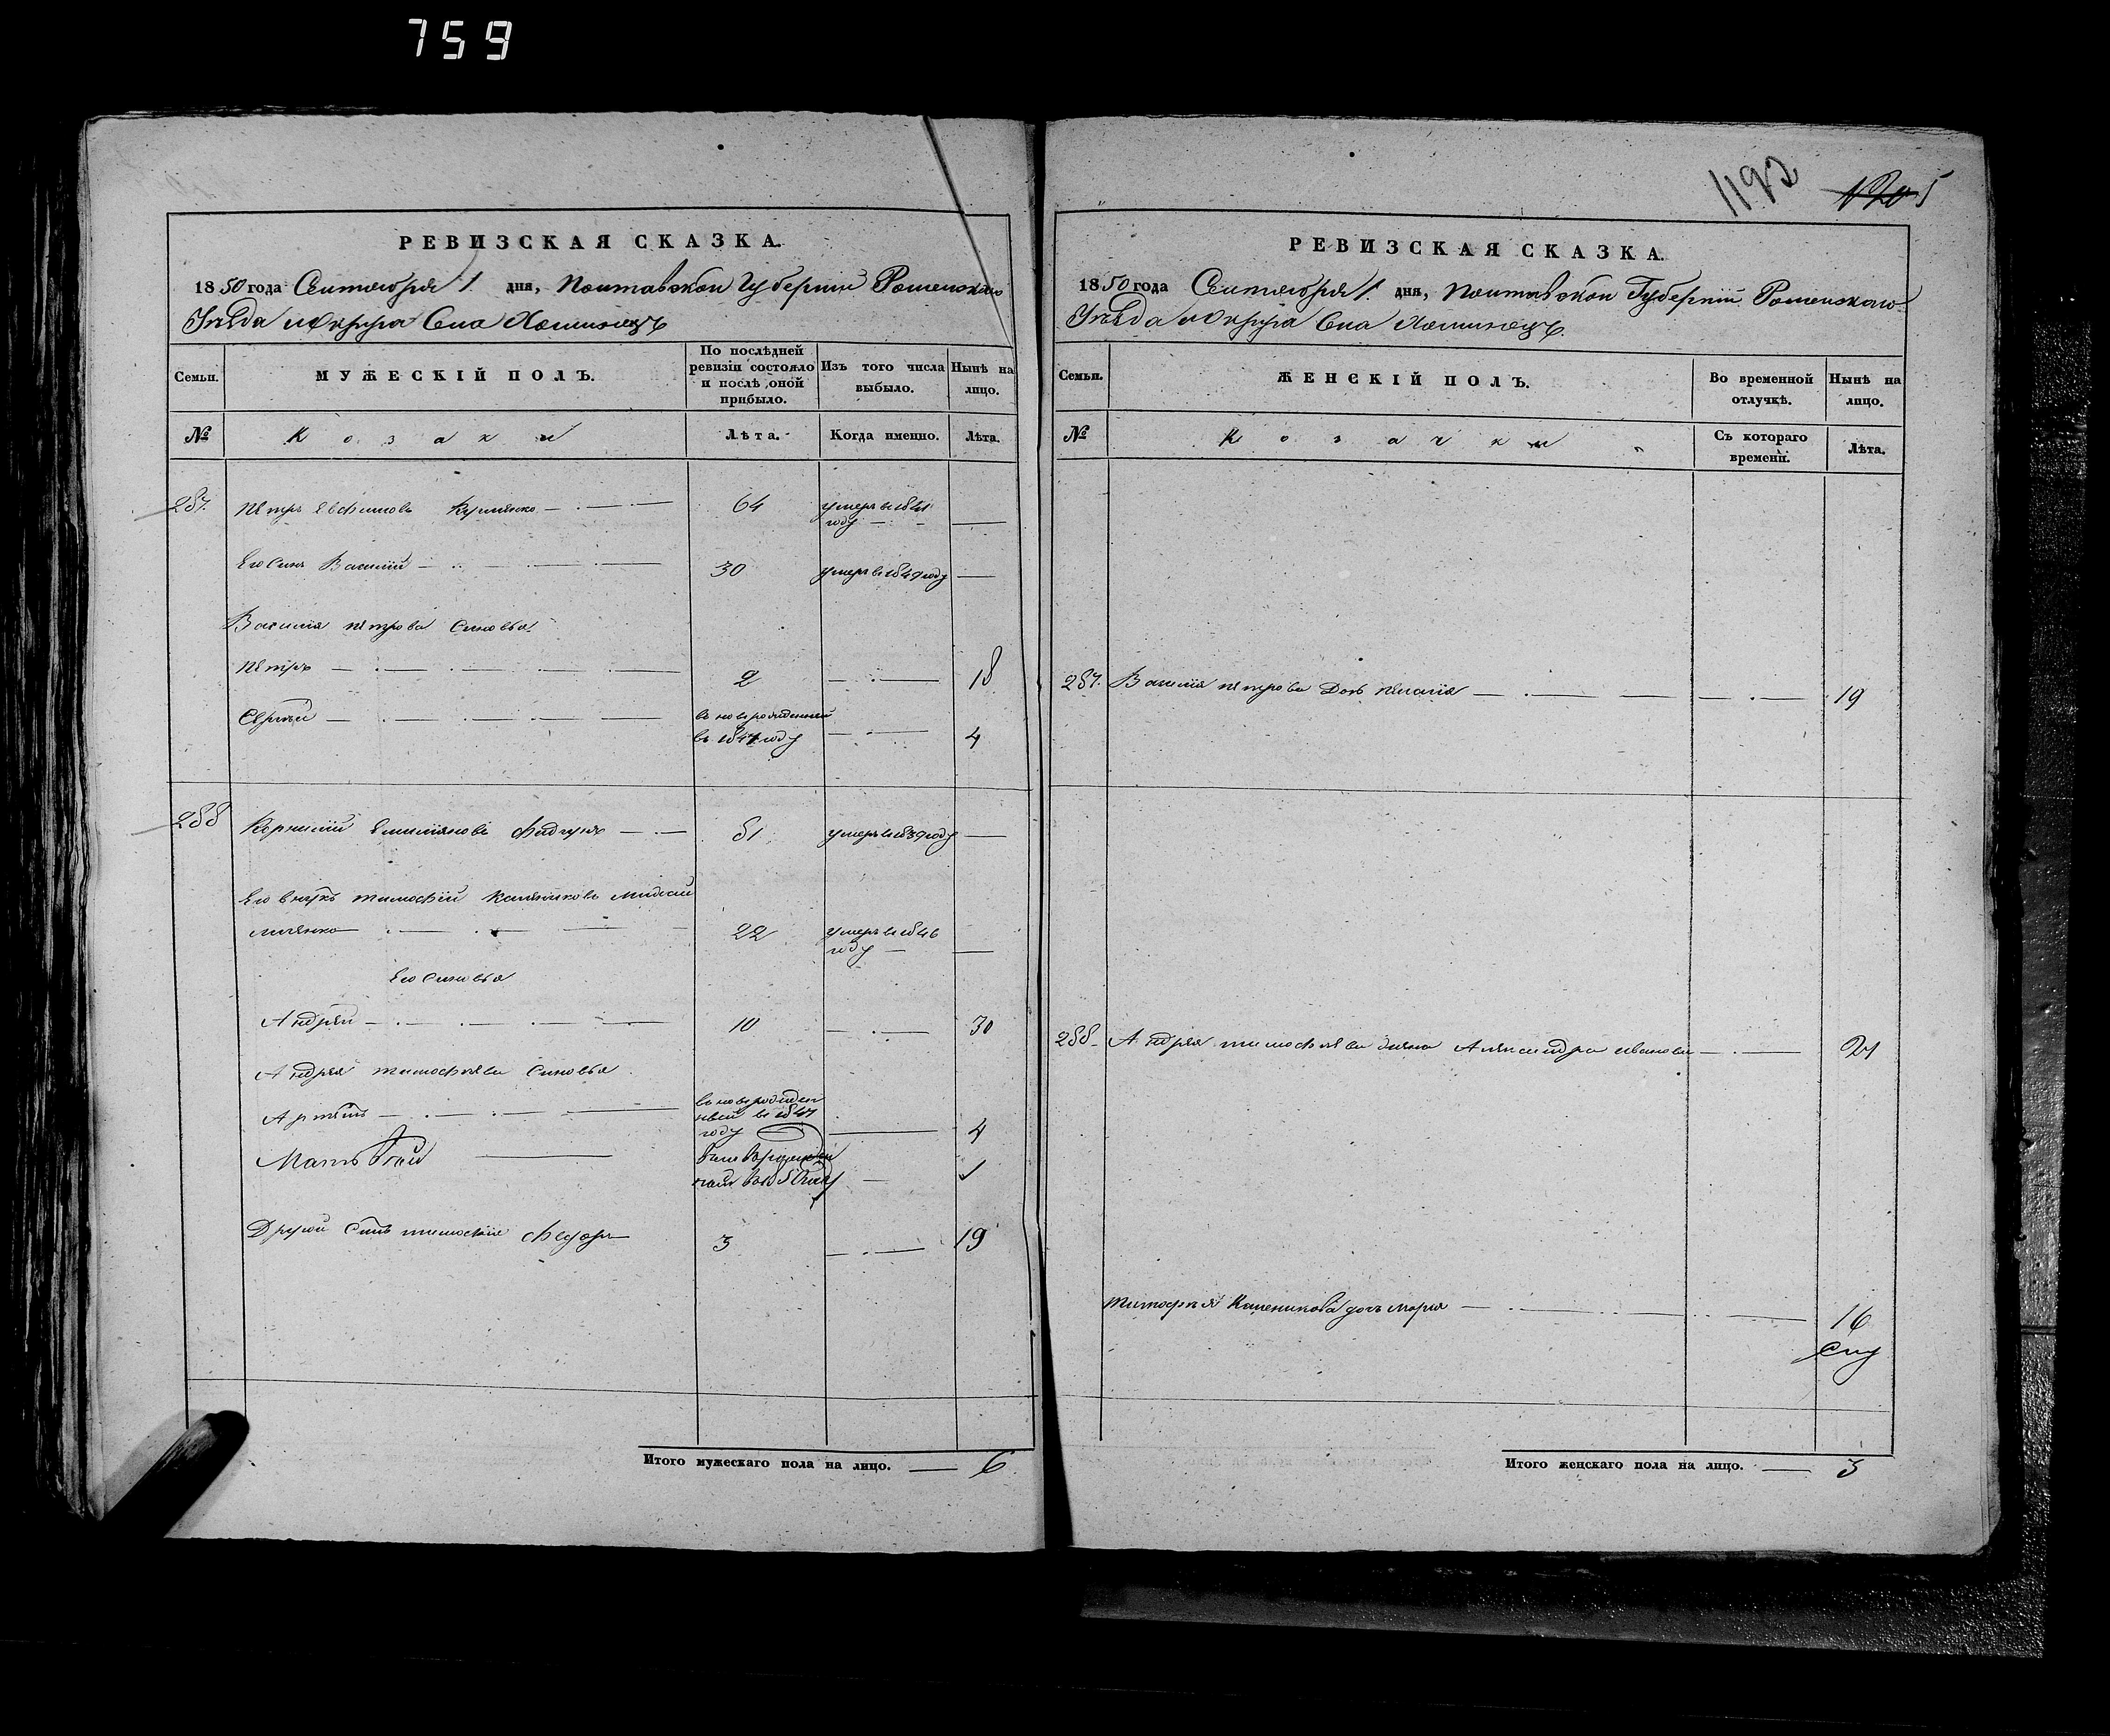 759
1192
1205
РЕВИЗСКАЯ СКАЗКА.
1850 года Сентября 1 дня, Полтавской Губерніи Роменскаго
Уѣзда и Округа Села
Семьи.
МУЖЕСКІЙ ПОЛЪ.
По послѣдней ревизіи состояло и послѣ оной прибыло.
Изъ того числа выбыло.
Нынѣ на лицо.
№
Козаки
Лѣта.
Когда именно.
Лѣта.
287. Петръ Евфимовъ 64 умеръ в 1841
году —
Его Сынъ Василій — 30 умеръ в 1849 году —
Василія Петрова Сыновья
Петръ — 2 — 18
Сергѣй — вновьрожденный
въ 1847 году — 4
288 Корнилій Емиліяновъ 81 умеръ в 1839 году —
Его внукъ Тимофій Калениковъ
22 умеръ в 1846
году —
Его Сыновья
Андрей — 10 — 30
Андрея Тимофѣева Сыновья
Артемъ — вновьрожден
ный в 1847
году — 4
Матвѣй — 1
Другой Сынъ Тимофія Федоръ 3 — 19
Итого мужескаго пола на лицо. — 6
РЕВИЗСКАЯ СКАЗКА.
1850 года Сентября 1. дня, Полтавской Губерніи Роменскаго
Уѣзда и Округа Села
Семьи.
ЖЕНСКІЙ ПОЛЪ.
Во временной отлучкѣ.
Нынѣ на лицо.
№
Козачки
Съ котораго времени.
Лѣта.
287. Василія Петрова Дочь Пелагія — 19
288. Андрея Тимофѣева жена Александра Иванова — 21
Тимофѣя Каленикова дочь Марія — 16
Итого женскаго пола на лицо. — 3